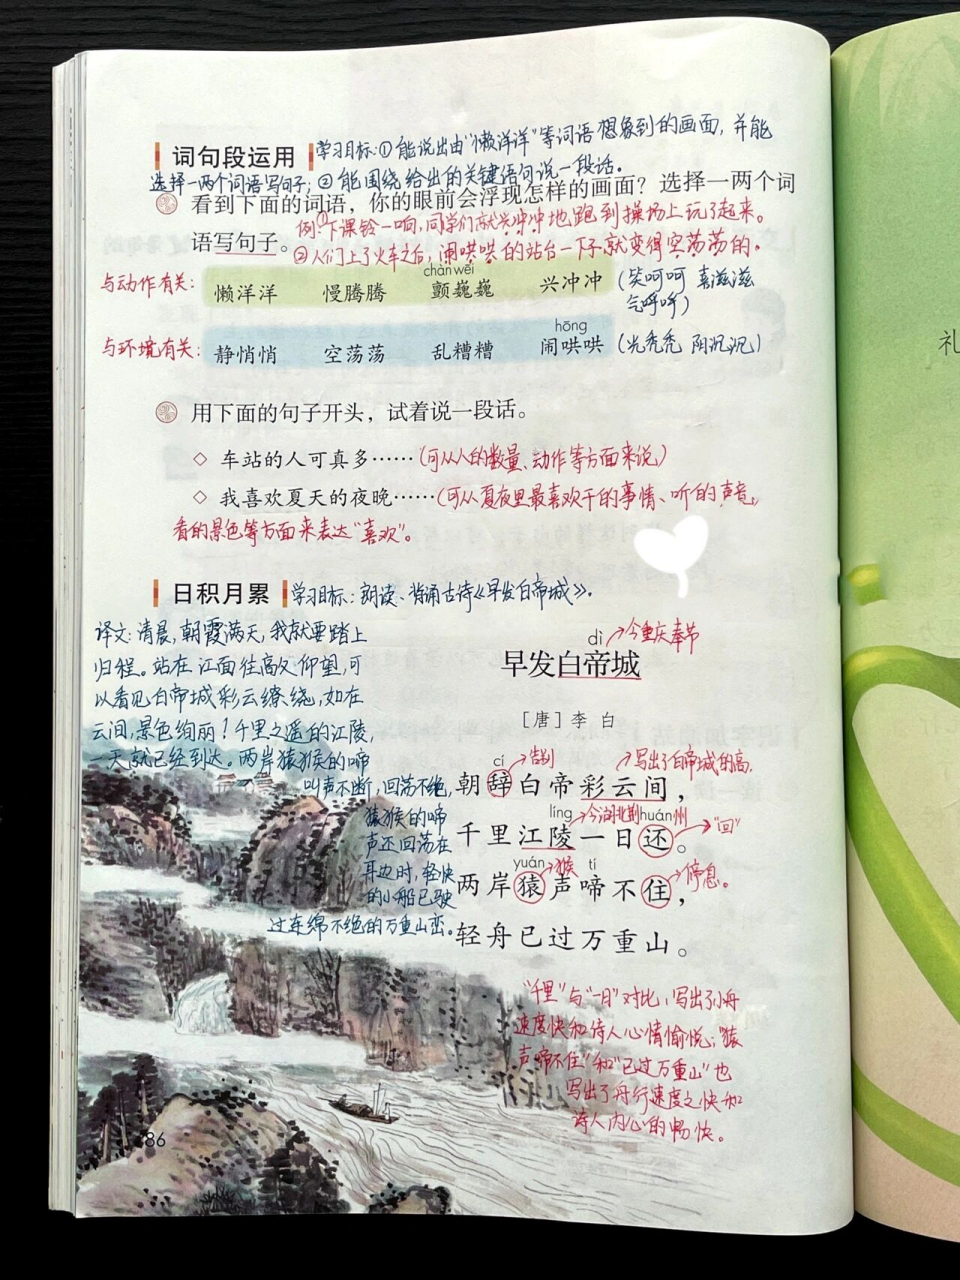 词句段运用 学习目标:①能说出由“懒洋洋”等词语想象到的画面,并能
选择一两个词语写句子;②能围绕给出的关键语句说一段话。
看到下面的词语,你的眼前会浮现怎样的画面?选择一两个词
例:①下课铃一响,同学们就兴冲冲地跑到操场上玩了起来。
语写句子。
②人们上了火车之后,闹哄哄的站台一下子就变得空荡荡的。
chàn wēi
与动作有关: 懒洋洋 慢腾腾 颤巍巍 兴冲冲 (笑呵呵 喜滋滋
气呼呼)
hōng
与环境有关: 静悄悄 空荡荡 乱糟糟 闹哄哄 (光秃秃 阴沉沉)
用下面的句子开头,试着说一段话。
◇ 车站的人可真多……(可从人的数量、动作等方面来说)
◇ 我喜欢夏天的夜晚……(可从夏夜里最喜欢干的事情、听的声音、
看的景色等方面来表达“喜欢”。
日积月累 学习目标:朗读、背诵古诗《早发白帝城》。
译文:清晨,朝霞满天,我就要踏上
归程。站在江面往高处仰望,可
以看见白帝城彩云缭绕,如在
云间,景色绚丽!千里之遥的江陵,
一天就已经到达。两岸猿猴的啼
叫声不断,回荡不绝,
猿猴的啼
声还回荡在
耳边时,轻快
的小船已驶
过连绵不绝的万重山峦。
dì 今重庆奉节
早发白帝城
[唐]李 白
cí 告别 写出了白帝城的高。
朝辞白帝彩云间,
líng 今湖北荆州 huán
千里江陵一日还。 “回”
yuán 猴 tí
两岸猿声啼不住, 停息。
轻舟已过万重山。
“千里”与“一日”对比,写出了小舟
速度快和诗人心情愉悦;“猿
声啼不住”和“已过万重山”也
写出了舟行速度之快和
诗人内心的畅快。
86
礼